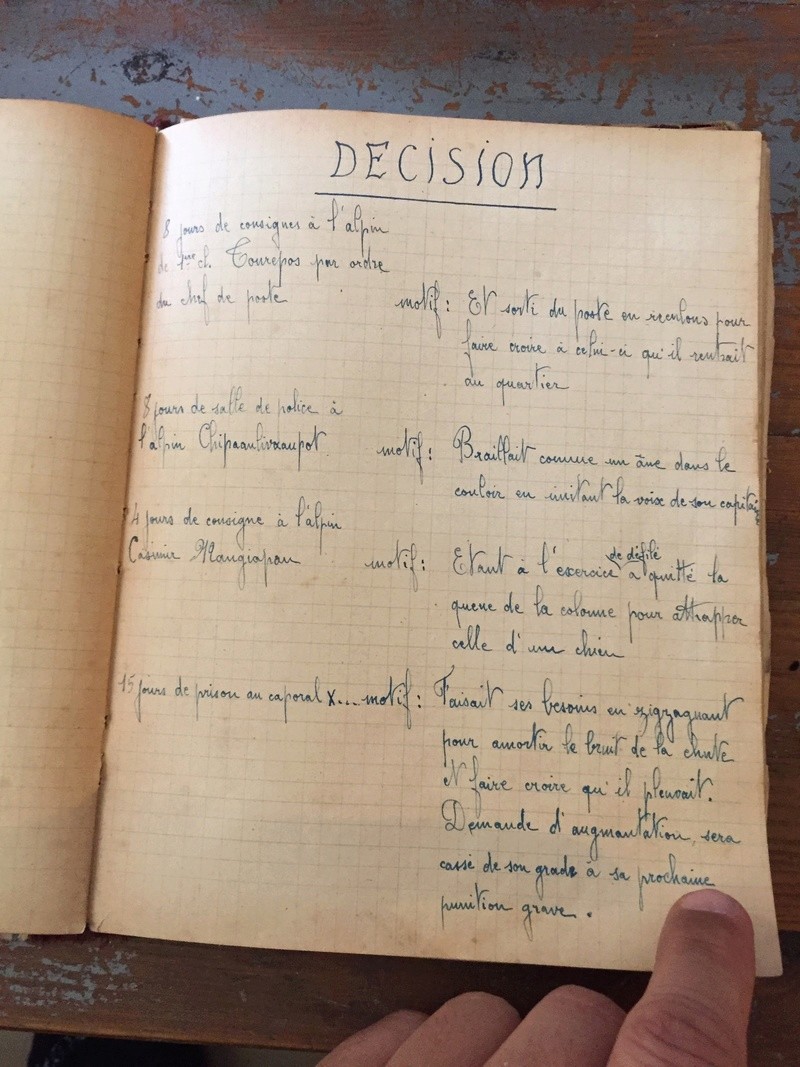 DECISION
8 jours de consignes à l'alpin
de 1ère cl. Tourepos par ordre
du chef de poste
motif : Et sorti du poste en reculons pour
faire croire à celui-ci qu'il rentrait
au quartier
8 jours de salle de police à
l'alpin
motif : Braillait comme un âne dans le
couloir en imitant la voix de son capitaine
4 jours de consigne à l'alpin
Casimir Mangiapan
motif : Etant à l'exercice de défilé a quitté la
queue de la colonne pour attrapper
celle d'un chien
15 jours de prison au caporal X... motif : Faisait ses besoins en zigzagnant
pour amortir le bruit de la chute
et faire croire qu'il pleuvait.
Demande d'augmantation, sera
cassé de son grade à sa prochaine
punition grave.